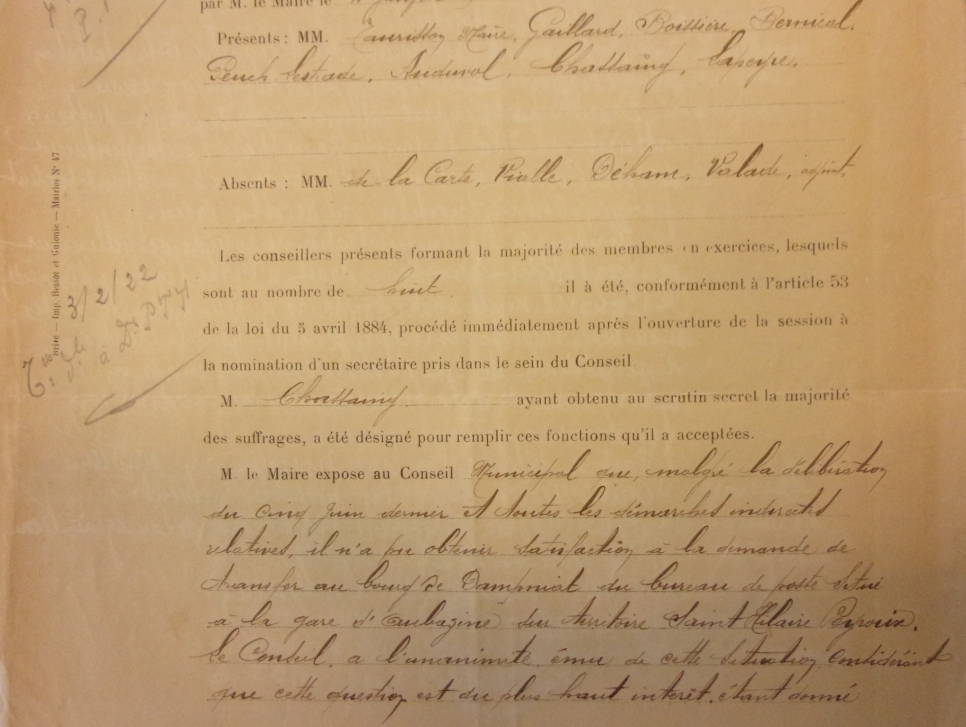 par M. le Maire le
Présents : MM. Maire, Gaillard, Boissière, Bernical,
Peuch Lestrade, Anduval, Chassaing, Lapeyre.
Absents : MM. de la Carte, Vialle, Déham, Valade, adjoint.
Les conseillers présents formant la majorité des membres en exercices, lesquels
sont au nombre de huit il à été, conformément à l'article 53
de la loi du 5 avril 1884, procédé immédiatement après l'ouverture de la session à
la nomination d'un secrétaire pris dans le sein du Conseil
M. Chassaing ayant obtenu au scrutin secret la majorité
des suffrages, a été désigné pour remplir ces fonctions qu'il a acceptées.
M. le Maire expose au Conseil Municipal que, malgré la délibération
du cinq Juin dernier et toutes les démarches indirectes
relatives, il n'a pu obtenir satisfaction à la demande de
transfer au bourg de Dampniat du bureau de poste situé
à la gare d'Aubazine sur territoire Saint Hilaire Peyroux.
Le Conseil, a l'unanimité, ému de cette situation, considérant
que cette question est du plus haut intérêt, étant donné
Imp. Bessot et Guionie — Mairies N° 47
3/2/22